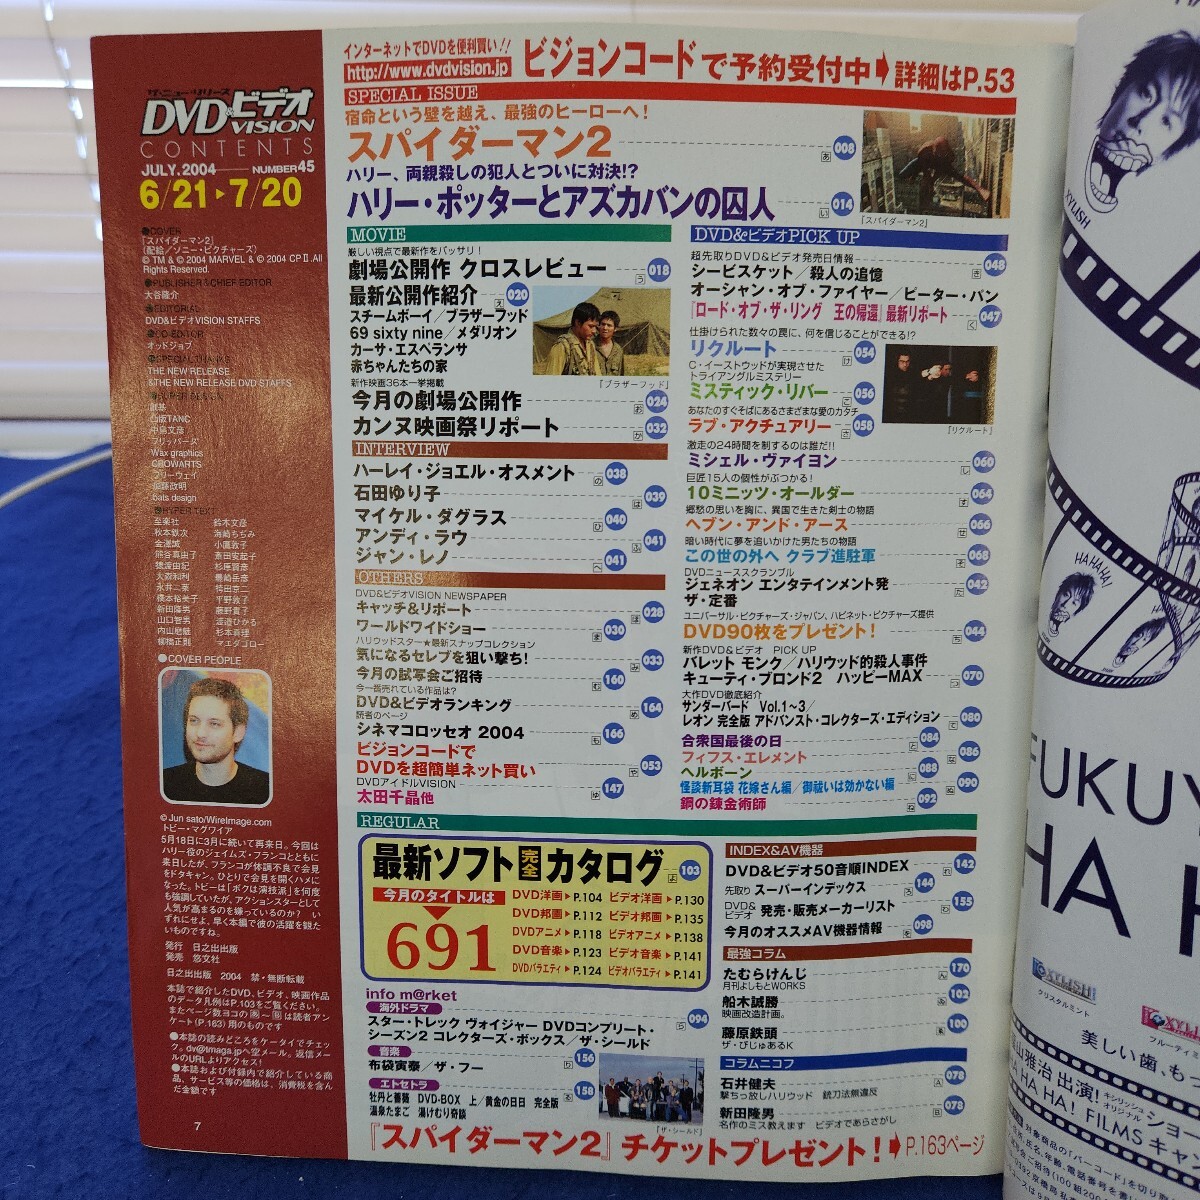 インターネットでDVDを便利買い!!
http://www.dvdvision.jp
ビジョンコードで予約受付中➡詳細はP.53
ザ・ニュー・リリース
DVD&ビデオ
VISION
CONTENTS
JULY.2004 NUMBER45
6/21▶7/20
●COVER
『スパイダーマン2』
(配給/ソニー・ピクチャーズ)
©TM & © 2004 MARVEL & © 2004 CPⅡ.All
Rights Reserved.
●PUBLISHER&CHIEF EDITOR
大谷隆介
●EDITORIAL
DVD&ビデオVISION STAFFS
オッドジョブ
●SPECIAL THANKS
THE NEW RELEASE
&THE NEW RELEASE DVD STAFFS
凸版TANC
中島文彦
フリッパーズ
Wax graphics
CROWARTS
フリーウェイ
bats design
●HYPER TEXT
至楽社 鈴木文彦
山口智男 渡邉ひかる
内山磨鯱 杉本真理
柳橋正則 マエダゴロー
●COVER PEOPLE
©Jun sato/WireImage.com
トビー・マグワイア
5月18日に3月に続いて再来日。今回は
ハリー役のジェイムズ・フランコとともに
来日したが、フランコが体調不良で会見
をドタキャン。ひとりで会見を開くハメに
なった。トビーは「ボクは演技派」を何度
も強調していたが、アクションスターとして
人気が高まるのを嫌っているのか? い
ずれにせよ、早く本編で彼の活躍を観た
いものですね。
発行 日之出出版
発売 悠文社
日之出出版 2004 禁・無断転載
本誌で紹介したDVD、ビデオ、映画作品
のデータ凡例はP.103をご覧ください。
ケート(P.163)用のものです
●本誌の読みどころをケータイでチェッ
ク。dv@tmaga.jpへ空メール。返信メー
ルのURLよりアクセス!
●本誌および付録内で紹介している商
品、サービス等の価格は、消費税を含ん
だ金額です
7
SPECIAL ISSUE
宿命という壁を越え、最強のヒーローへ!
スパイダーマン2 008 あ
ハリー、両親殺しの犯人とついに対決!?
ハリー・ポッターとアズカバンの囚人 014 い
『スパイダーマン2』
MOVIE
厳しい視点で最新作をバッサリ!
劇場公開作 クロスレビュー 018 う
最新公開作紹介 020 え
スチームボーイ/ブラザーフッド
69 sixty nine/メダリオン
カーサ・エスペランサ
赤ちゃんたちの家
『ブラザーフッド』
新作映画36本一挙掲載
今月の劇場公開作 024 お
カンヌ映画祭リポート 032 か
INTERVIEW
ハーレイ・ジョエル・オスメント 038 の
石田ゆり子 039 は
マイケル・ダグラス 040 ひ
アンディ・ラウ 041 ふ
ジャン・レノ 041 へ
OTHERS
DVD&ビデオVISION NEWSPAPER
キャッチ&リポート 028 ほ
ワールドワイドショー 030 ま
ハリウッドスター★最新スナップコレクション
気になるセレブを狙い撃ち! 033 み
今月の試写会ご招待 160 む
今一番売れている作品は?
DVD&ビデオランキング 164 め
読者のページ
シネマコロッセオ 2004 166 も
ビジョンコードで
DVDを超簡単ネット買い 053 や
DVDアイドルVISION
太田千晶他 147 ゆ
DVD&ビデオPICK UP
超先取りDVD&ビデオ発売日情報
シービスケット/殺人の追憶 048 き
オーシャン・オブ・ファイヤー/ピーター・パン
『ロード・オブ・ザ・リング 王の帰還』最新リポート 047 く
仕掛けられた数々の罠に、何を信じることができる!?
リクルート 054 け
C・イーストウッドが実現させた
トライアングルミステリー
ミスティック・リバー 056 こ
あなたのすぐそばにあるさまざまな愛のカタチ
ラブ・アクチュアリー 058 さ
『リクルート』
激走の24時間を制するのは誰だ!!
ミシェル・ヴァイヨン 060 し
巨匠15人の個性がぶつかる!
10ミニッツ・オールダー 064 す
郷愁の思いを胸に、異国で生きた剣士の物語
ヘブン・アンド・アース 066 せ
暗い時代に夢を追いかけた男たちの物語
この世の外へ クラブ進駐軍 068 そ
DVDニューススクランブル
ジェネオン エンタテインメント発 042 た
ザ・定番
ユニバーサル・ピクチャーズ・ジャパン、ハピネット・ピクチャーズ提供
DVD90枚をプレゼント! 044 ち
新作DVD&ビデオ PICK UP
バレット モンク/ハリウッド的殺人事件
キューティ・ブロンド2 ハッピーMAX 070 つ
大作DVD徹底紹介
サンダーバード Vol.1~3/
レオン 完全版 アドバンスト・コレクターズ・エディション 080 て
合衆国最後の日 084 と
フィフス・エレメント 086 な
ヘルボーン 088 に
怪談新耳袋 花嫁さん編/御祓いは効かない編 090 ぬ
鋼の錬金術師 092 ね
REGULAR
最新ソフト完全カタログ 103 よ
今月のタイトルは
691
DVD洋画▶P.104 ビデオ洋画▶P.130
DVD邦画▶P.112 ビデオ邦画▶P.135
DVDアニメ▶P.118 ビデオアニメ▶P.138
DVD音楽▶P.123 ビデオ音楽▶P.141
DVDバラエティ▶P.124 ビデオバラエティ▶P.141
info m@rket
海外ドラマ 094 ら
スター・トレック ヴォイジャー DVDコンプリート・
シーズン2 コレクターズ・ボックス/ザ・シールド
音楽 156 り
布袋寅泰/ザ・フー
エトセトラ 158
牡丹と薔薇 DVD-BOX 上/黄金の日日 完全版
温泉たまご 湯けむり奇談
『ザ・シールド』
INDEX&AV機器
DVD&ビデオ50音順INDEX 142 れ
先取り スーパーインデックス 144 ろ
DVD&ビデオ 発売・販売メーカーリスト 155 わ
今月のオススメAV機器情報 098 を
最強コラム
たむらけんじ 170 ん
月刊よしもとWORKS
船木誠勝 102
映画改造計画。
藤原鉄頭 100
ザ・びじゅあるK
コラムニコフ
石井健夫 078 A
撃ちっ放しハリウッド 銃刀法無違反
新田隆男 078 B
名作のミス教えます ビデオであらさがし
『スパイダーマン2』チケットプレゼント!➡P.163ページ
HA
HA!
XYLISH
HAHAHA!
FUKUY
HA H
XYLISH
クリスタルミント
XYL
フルーティ
美しい歯、もっ
山雅治 出演!
キシリッシュ
オリジナル
ショー
HA HA HA! FILMS キャ